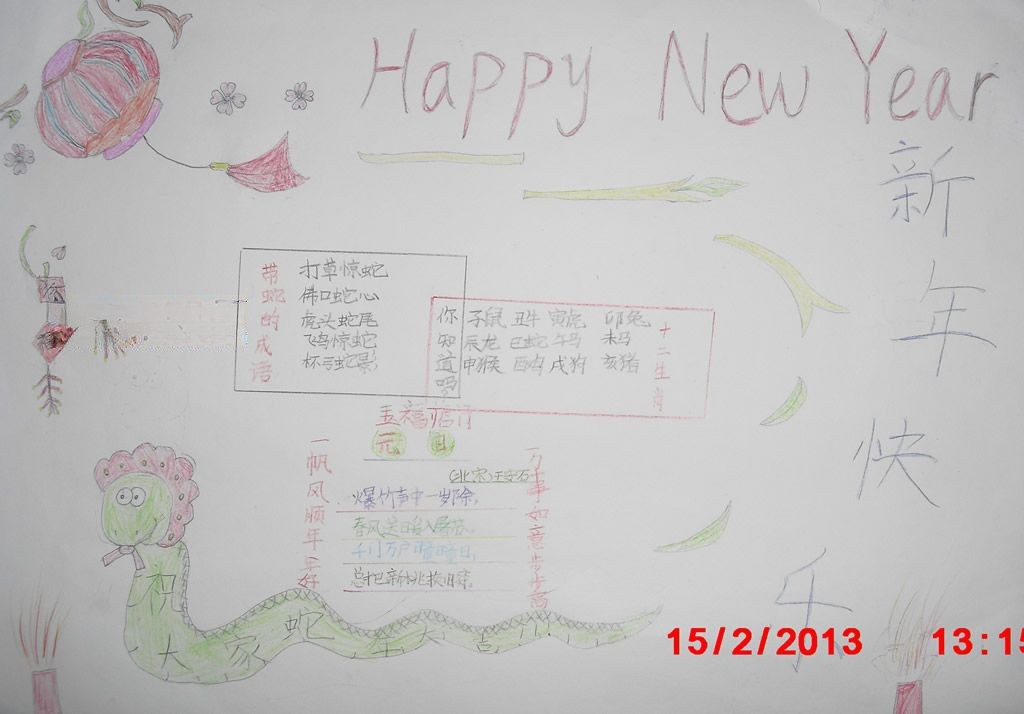 Happy New Year
新年快乐
带蛇的成语
打草惊蛇
佛口蛇心
虎头蛇尾
飞鸟惊蛇
杯弓蛇影
你知道吗
子鼠 丑牛 寅虎 卯兔
辰龙 巳蛇 午马 未马
申猴 酉鸡 戌狗 亥猪
十二生肖
五福临门
元日
(北宋)王安石
一帆风顺年年好
爆竹声中一岁除,
春风送暖入屠苏.
千门万户曈曈日,
总把新桃换旧符.
万事如意步步高
祝大家蛇年大吉
15/2/2013 13:15